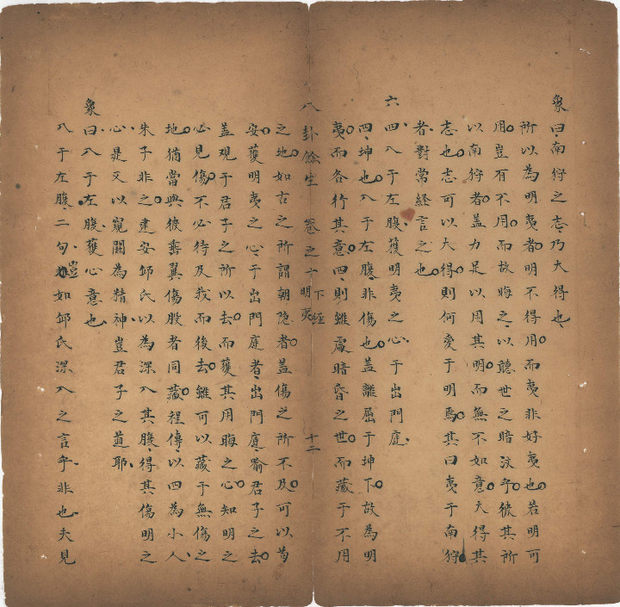 象曰南狩之志乃大得也
所以為明夷者明不得用而夷非好夷也若明可
用豈有不用而故晦之以聽世之暗汶乎彼其所
以南狩者盖力足以用其明而無不如意大得其
志也志可以大得則何愛于明焉其曰夷于南狩
者對常経言之也
六四入于左腹獲明夷之心于出門庭
四坤也入于左腹非傷也盖離屈于坤下故為明
夷而各行其意四則雖處暗昏之世而藏于不用
八卦餘生 卷之十 下経 明夷 十二
之地如古之所謂朝隐者盖傷之所不及可以為
安獲明夷之心于出門庭者出門庭喻君子之去
盖观于君子之所以去而獲其用晦之心知明之
必見傷不必待及我而後去雖可以藏于無傷之
地猶當與彼垂翼傷股者同藏程傳以四為小人
朱子非之建安邱氏以為深入其腹得其傷明之
心是又以窺闗為精神豈君子之道耶
象曰入于左腹獲心意也
入于左腹二句豈如邱氏深入之言乎非也夫見